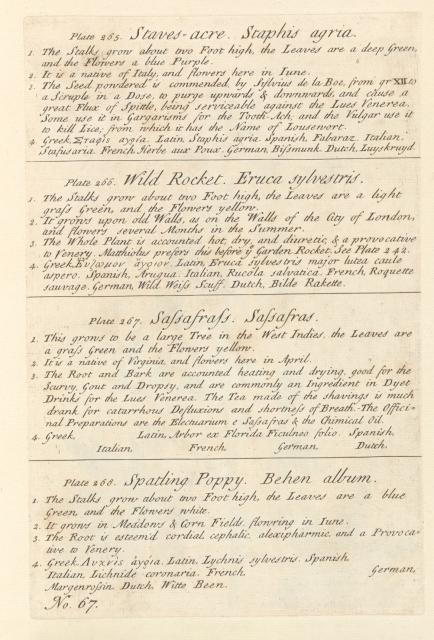 Plate 265. Staves-acre. Staphis agria.
1. The Stalks grow about two Foot high, the Leaves are a deep Green,
and the Flowers a blue Purple.
2. It is a native of Italy, and flowers here in Iune.
3. The Seed powdered is commended by Sylvius de la Boe, from gr XII to
a Scruple in a Dose, to purge upwards & downwards, and cause a
great Flux of Spittle, being serviceable against the Lues Venerea.
Some use it in Gargarisms for the Tooth Ach, and the Vulgar use it
to kill Lice, from which it has the Name of Lousewort.
4. Greek, Σταφὶς ἀγρία. Latin, Staphis agria. Spanish, Fabaraz. Italian,
Stafusaria. French, Herbe aux Poux. German, Biſsmunk. Dutch, Luyskruyd.
Plate 266. Wild Rocket. Eruca sylvestris.
1. The Stalks grow about two Foot high, the Leaves are a light
graſs Green, and the Flowers yellow.
2. It grows upon old Walls, as on the Walls of the City of London,
and flowers several Months in the Summer.
3. The Whole Plant is accounted hot, dry, and diuretic, & a provocative
to Venery. Matthiolus prefers this before ẏ Garden Rocket. See Plate 242.
4. Greek, Εὔζωμον ἄγριον. Latin, Eruca sylvestris major lutea caule
aspero. Spanish, Arugua. Italian, Rucola salvatica. French, Roquette
sauvage. German, Wild Weiſs Scuff. Dutch, Bilde Rakette.
Plate 267. Saſsafraſs. Saſsafras.
1. This grows to be a large Tree in the West Indies, the Leaves are
a graſs Green and the Flowers yellow.
2. It is a native of Virginia, and flowers here in April.
3. The Root and Bark are accounted heating and drying, good for the
Scurvy, Gout and Dropsy, and are commonly an Ingredient in Dyet
Drinks for the Lues Venerea. The Tea made of the shavings is much
drank for catarrhous Defluxions and shortneſs of Breath. The Offici-
nal Preparations are the Electuarium e Saſsafras & the Chimical Oil.
4. Greek, Latin, Arbor ex Florida Ficulneo folio. Spanish,
Italian, French, German, Dutch,
Plate 268. Spatling Poppy. Behen album.
1. The Stalks grow about two Foot high, the Leaves are a blue
Green, and the Flowers white.
2. It grows in Meadows & Corn Fields, flowring in Iune.
3. The Root is esteem'd cordial, cephalic, alexipharmic, and a Provoca-
tive to Venery.
4. Greek, Λυχνὶς ἀγρία. Latin, Lychnis sylvestris. Spanish,
Italian, Lichnide coronaria. French, German,
Margenroſsin. Dutch, Witte Been.
No. 67.